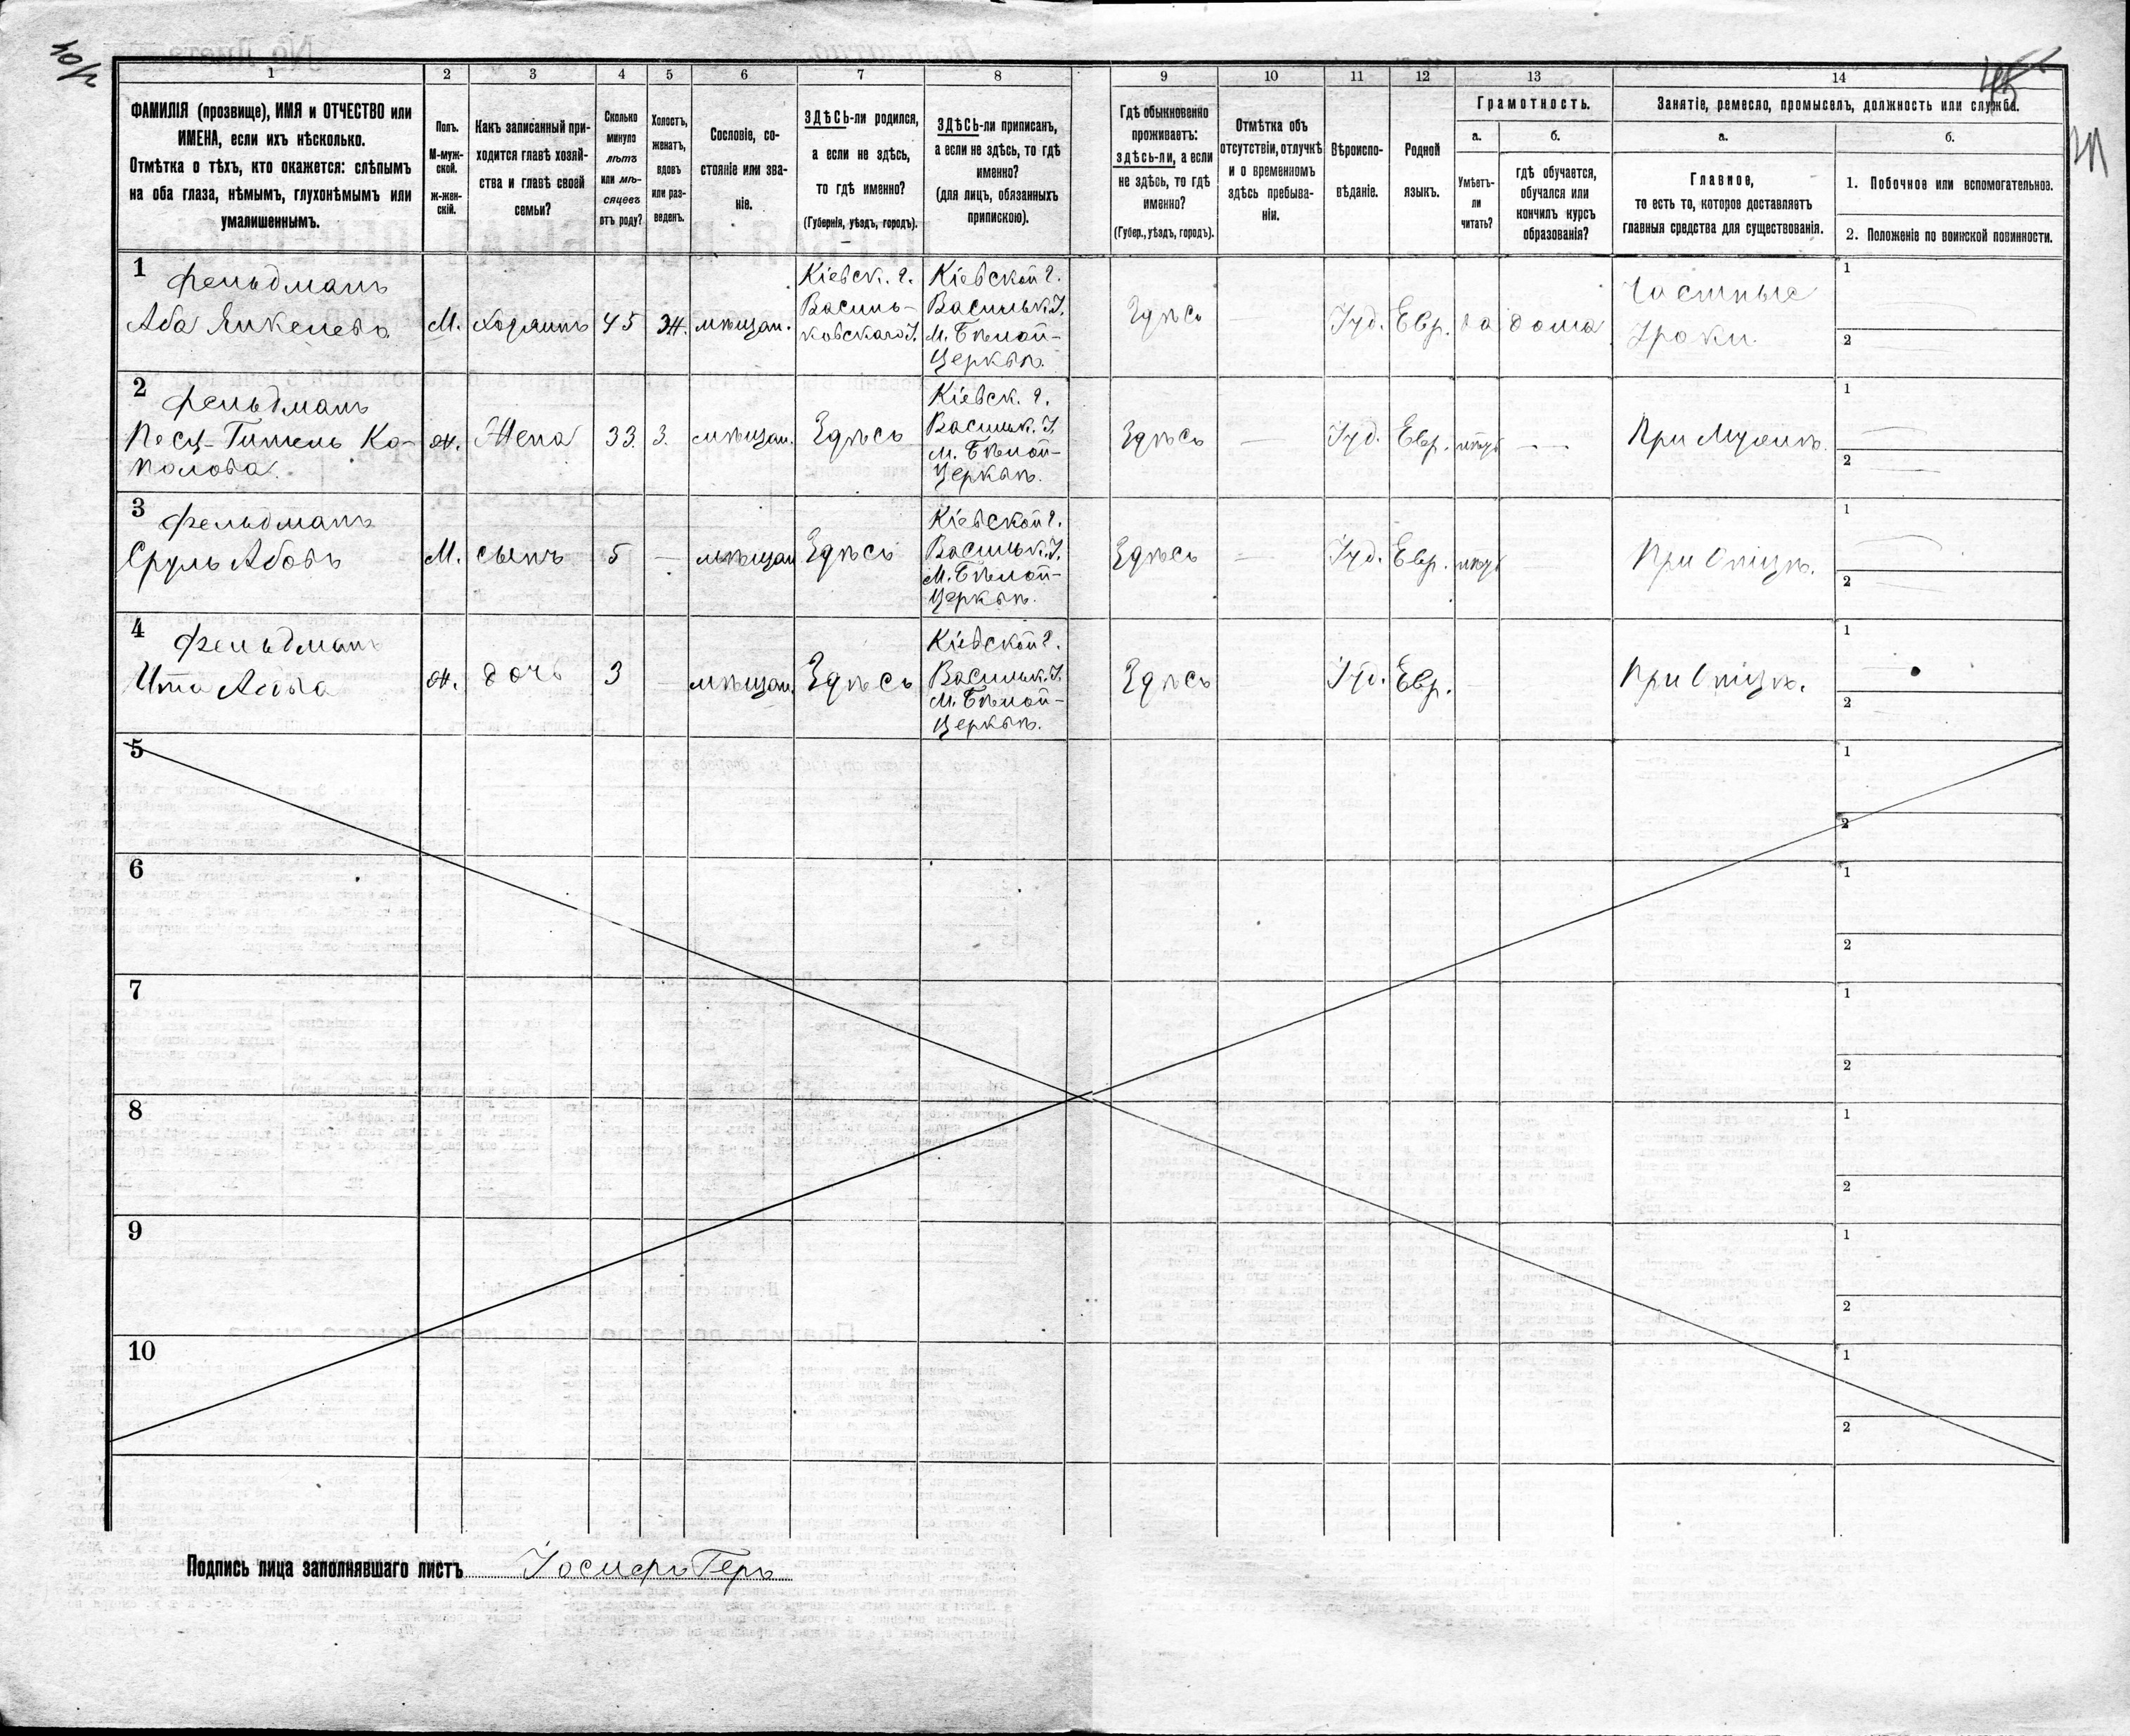 1 2 3 4 5 6 7 8 9 10 11 12 13 14
ФАМИЛІЯ (прозвище), ИМЯ и ОТЧЕСТВО или
ИМЕНА, если ихъ нѣсколько.
Отмѣтка о тѣхъ, кто окажется: слѣпымъ
на оба глаза, нѣмымъ, глухонѣмымъ или
умалишеннымъ.
Полъ.
М-муж-
ской.
ж-жен-
скій.
Какъ записанный при-
ходится главѣ хозяй-
ства и главѣ своей
семьи?
Сколько
минуло
лѣтъ
или мѣ-
сяцевъ
отъ роду?
Холостъ,
женатъ,
вдовъ
или раз-
веденъ.
Сословіе, со-
стояніе или зва-
ніе.
ЗДѢСЬ-ли родился,
а если не здѣсь,
то гдѣ именно?
(Губернія, уѣздъ, городъ).
ЗДѢСЬ-ли приписанъ,
а если не здѣсь, то гдѣ
именно?
(для лицъ, обязанныхъ
припискою).
Гдѣ обыкновенно
проживаетъ:
здѣсь-ли, а если
не здѣсь, то гдѣ
именно?
(Губер., уѣздъ, городъ).
Отмѣтка объ
отсутствіи, отлучкѣ
и о временномъ
здѣсь пребыва-
ніи.
Вѣроиспо-
вѣданіе.
Родной
языкъ.
Грамотность.
а.
Умѣетъ-
ли
читать?
б.
гдѣ обучается,
обучался или
кончилъ курсъ
образованія?
Занятіе, ремесло, промыселъ, должность или служба.
а.
Главное,
то есть то, которое доставляетъ
главныя средства для существованія.
б.
1. Побочное или вспомогательное.
2. Положеніе по воинской повинности.
1
Фельдманъ
Аба Янкелевъ
М.
Хозяинъ
45
Ж.
мѣщан.
Кіевск. г.
Василь-
ковскаго У.
Кіевской г.
Васильк. У.
М. Бѣлой-
Церкви.
Здѣсь
Іуд.
Евр.
да
дома
Частные
Уроки.
1
2
2
Фельдманъ
ж.
Жена
33.
З.
мѣщан.
Здѣсь
Кіевск. г.
Васильк. У.
м. Бѣлой-
Церкви.
Здѣсь
Іуд.
Евр.
При Мужѣ.
1
2
3
Фельдманъ
Сруль Абовъ
М.
сынъ
5
мѣщан
Здѣсь
Кіевской г.
Васильк. У.
М. Бѣлой-
Церкви.
Здѣсь
Іуд.
Евр.
При Отцѣ.
1
2
4
Фельдманъ
Ита Абова
ж.
дочь
3
мѣщан.
Здѣсь
Кіевской г.
Васильк. У.
М. Бѣлой-
Церкви.
Здѣсь
Іуд.
Евр.
При Отцѣ.
1
2
5
1
2
6
1
2
7
1
2
8
1
2
9
1
2
10
1
2
Подпись лица заполнявшаго листъ Іосифъ Геръ